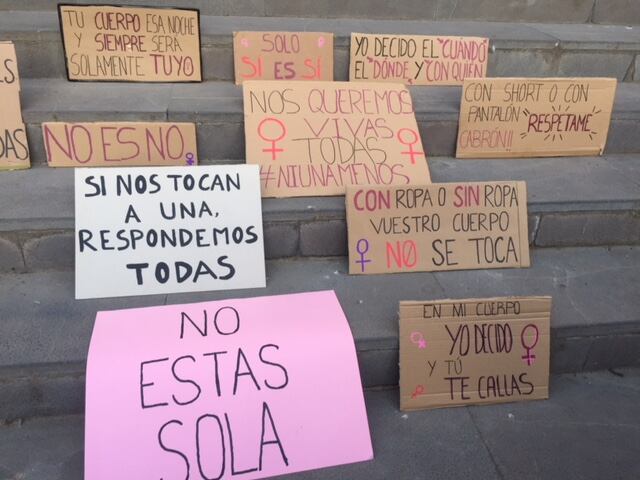 TU CUERPO ESA NOCHE
Y SIEMPRE SERÁ
SOLAMENTE TUYO
SOLO
SÍ ES SÍ
YO DECIDO EL "CUÁNDO"
EL "DÓNDE" Y "CON QUIÉN"
DAS
NO ES NO
NOS QUEREMOS
VIVAS
TODAS
#NIUNAMENOS
CON SHORT O CON
PANTALÓN
RESPETAME
CABRÓN!!
SI NOS TOCAN
A UNA,
RESPONDEMOS
TODAS
CON ROPA O SIN ROPA
VUESTRO CUERPO
NO SE TOCA
NO
ESTAS
SOLA
EN MI CUERPO
YO DECIDO
Y TÚ
TE CALLAS